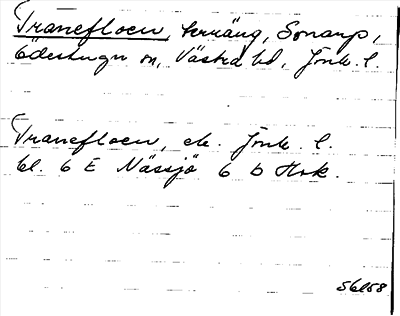 Tranefloen, terräng, Sonarp,
Ödestugu sn, Västra hd, Jönk. l.
Tranefloen, ek. Jönk. l.
bl. 6 E Nässjö 6 b Hok.